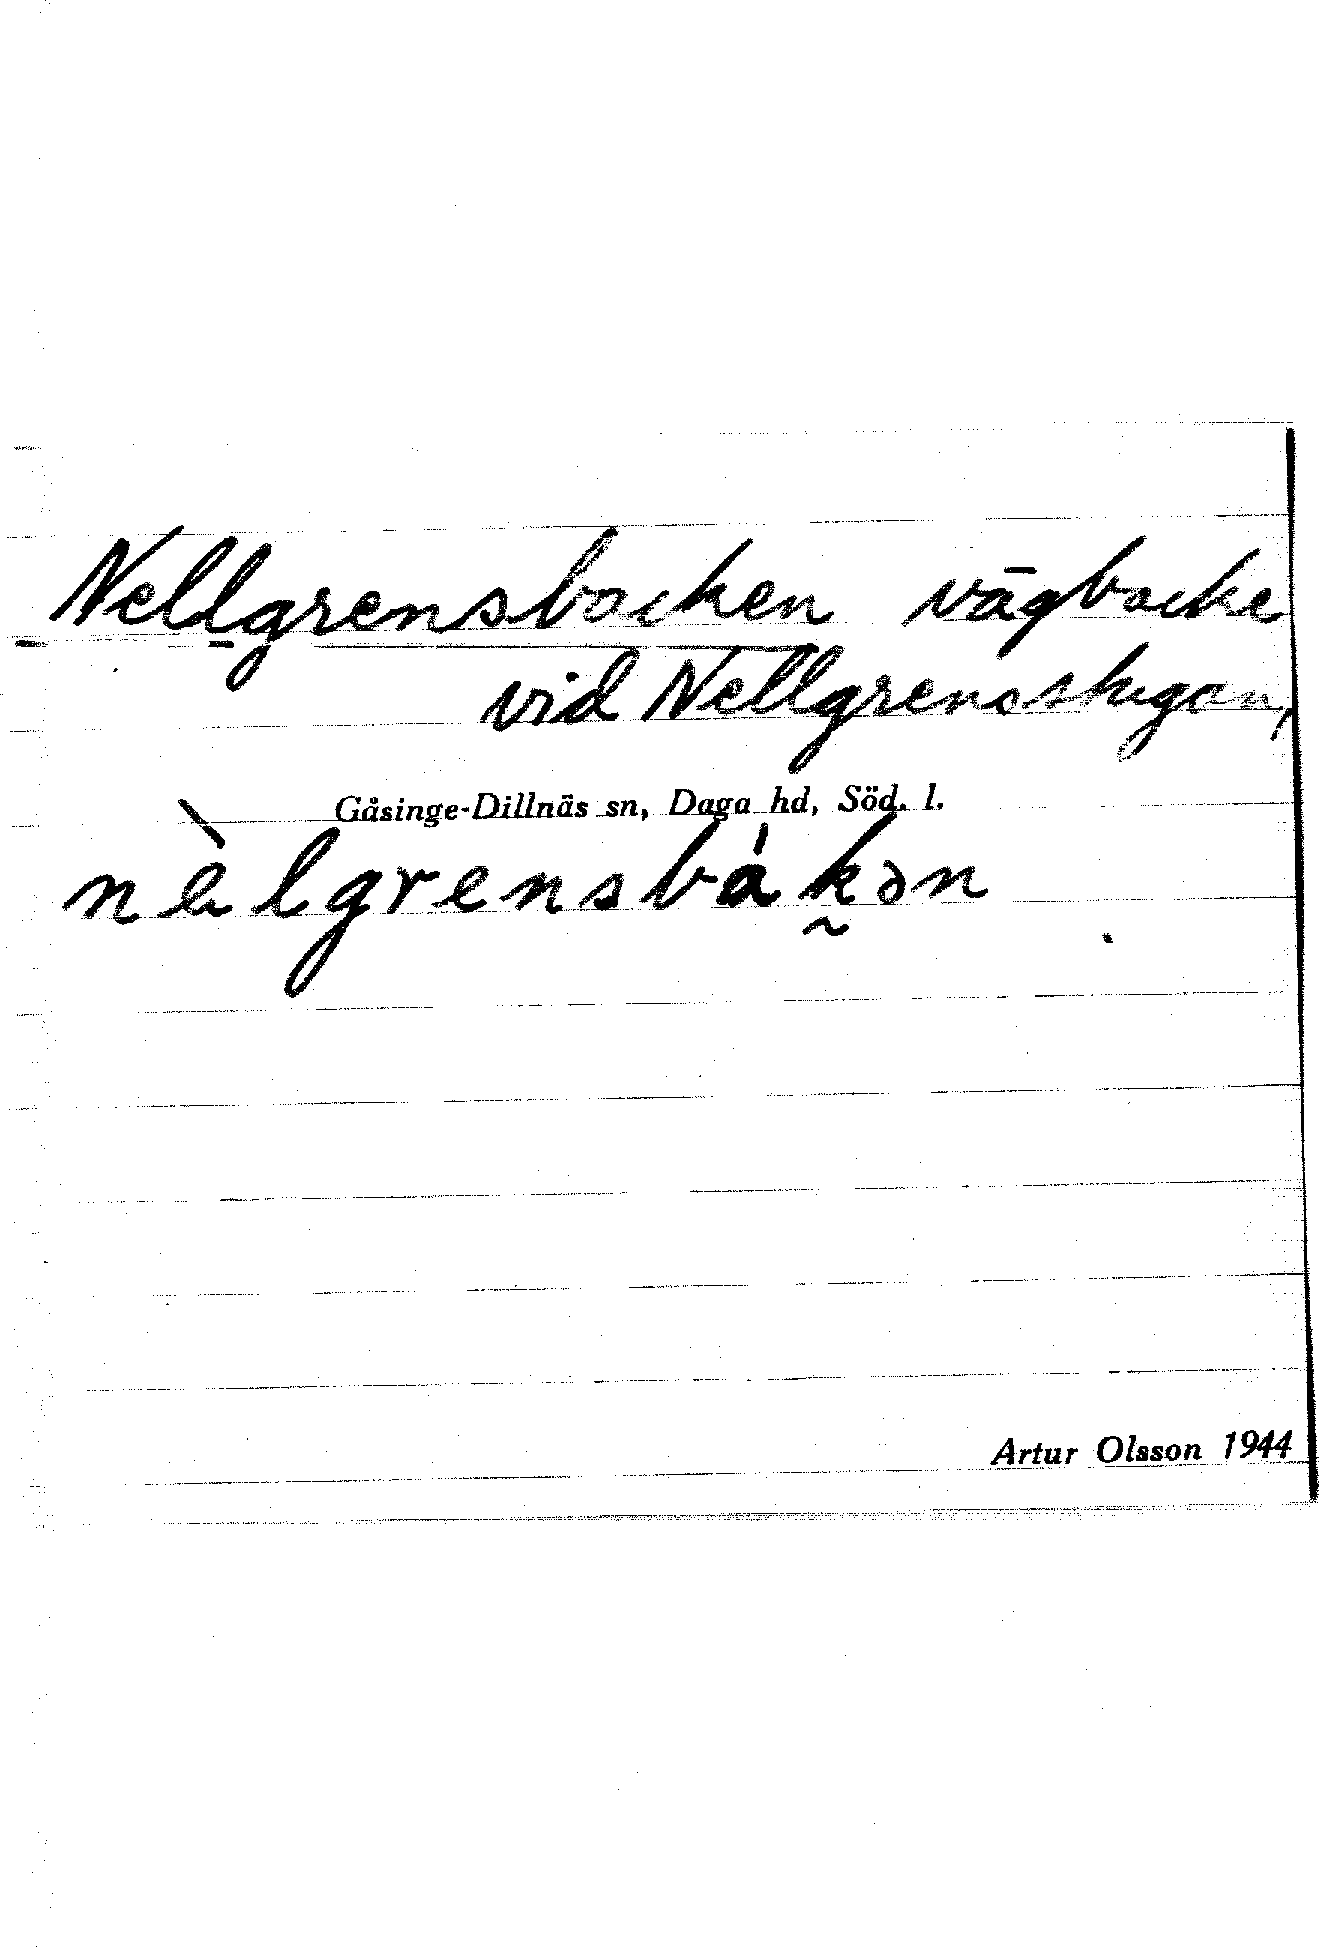 Nellgrensbacken vägbacke
vid Nellgrensstugan,
Gåsinge-Dillnäs sn, Daga hd, Söd. l.
nèlgrensbákən
Artur Olsson 1944